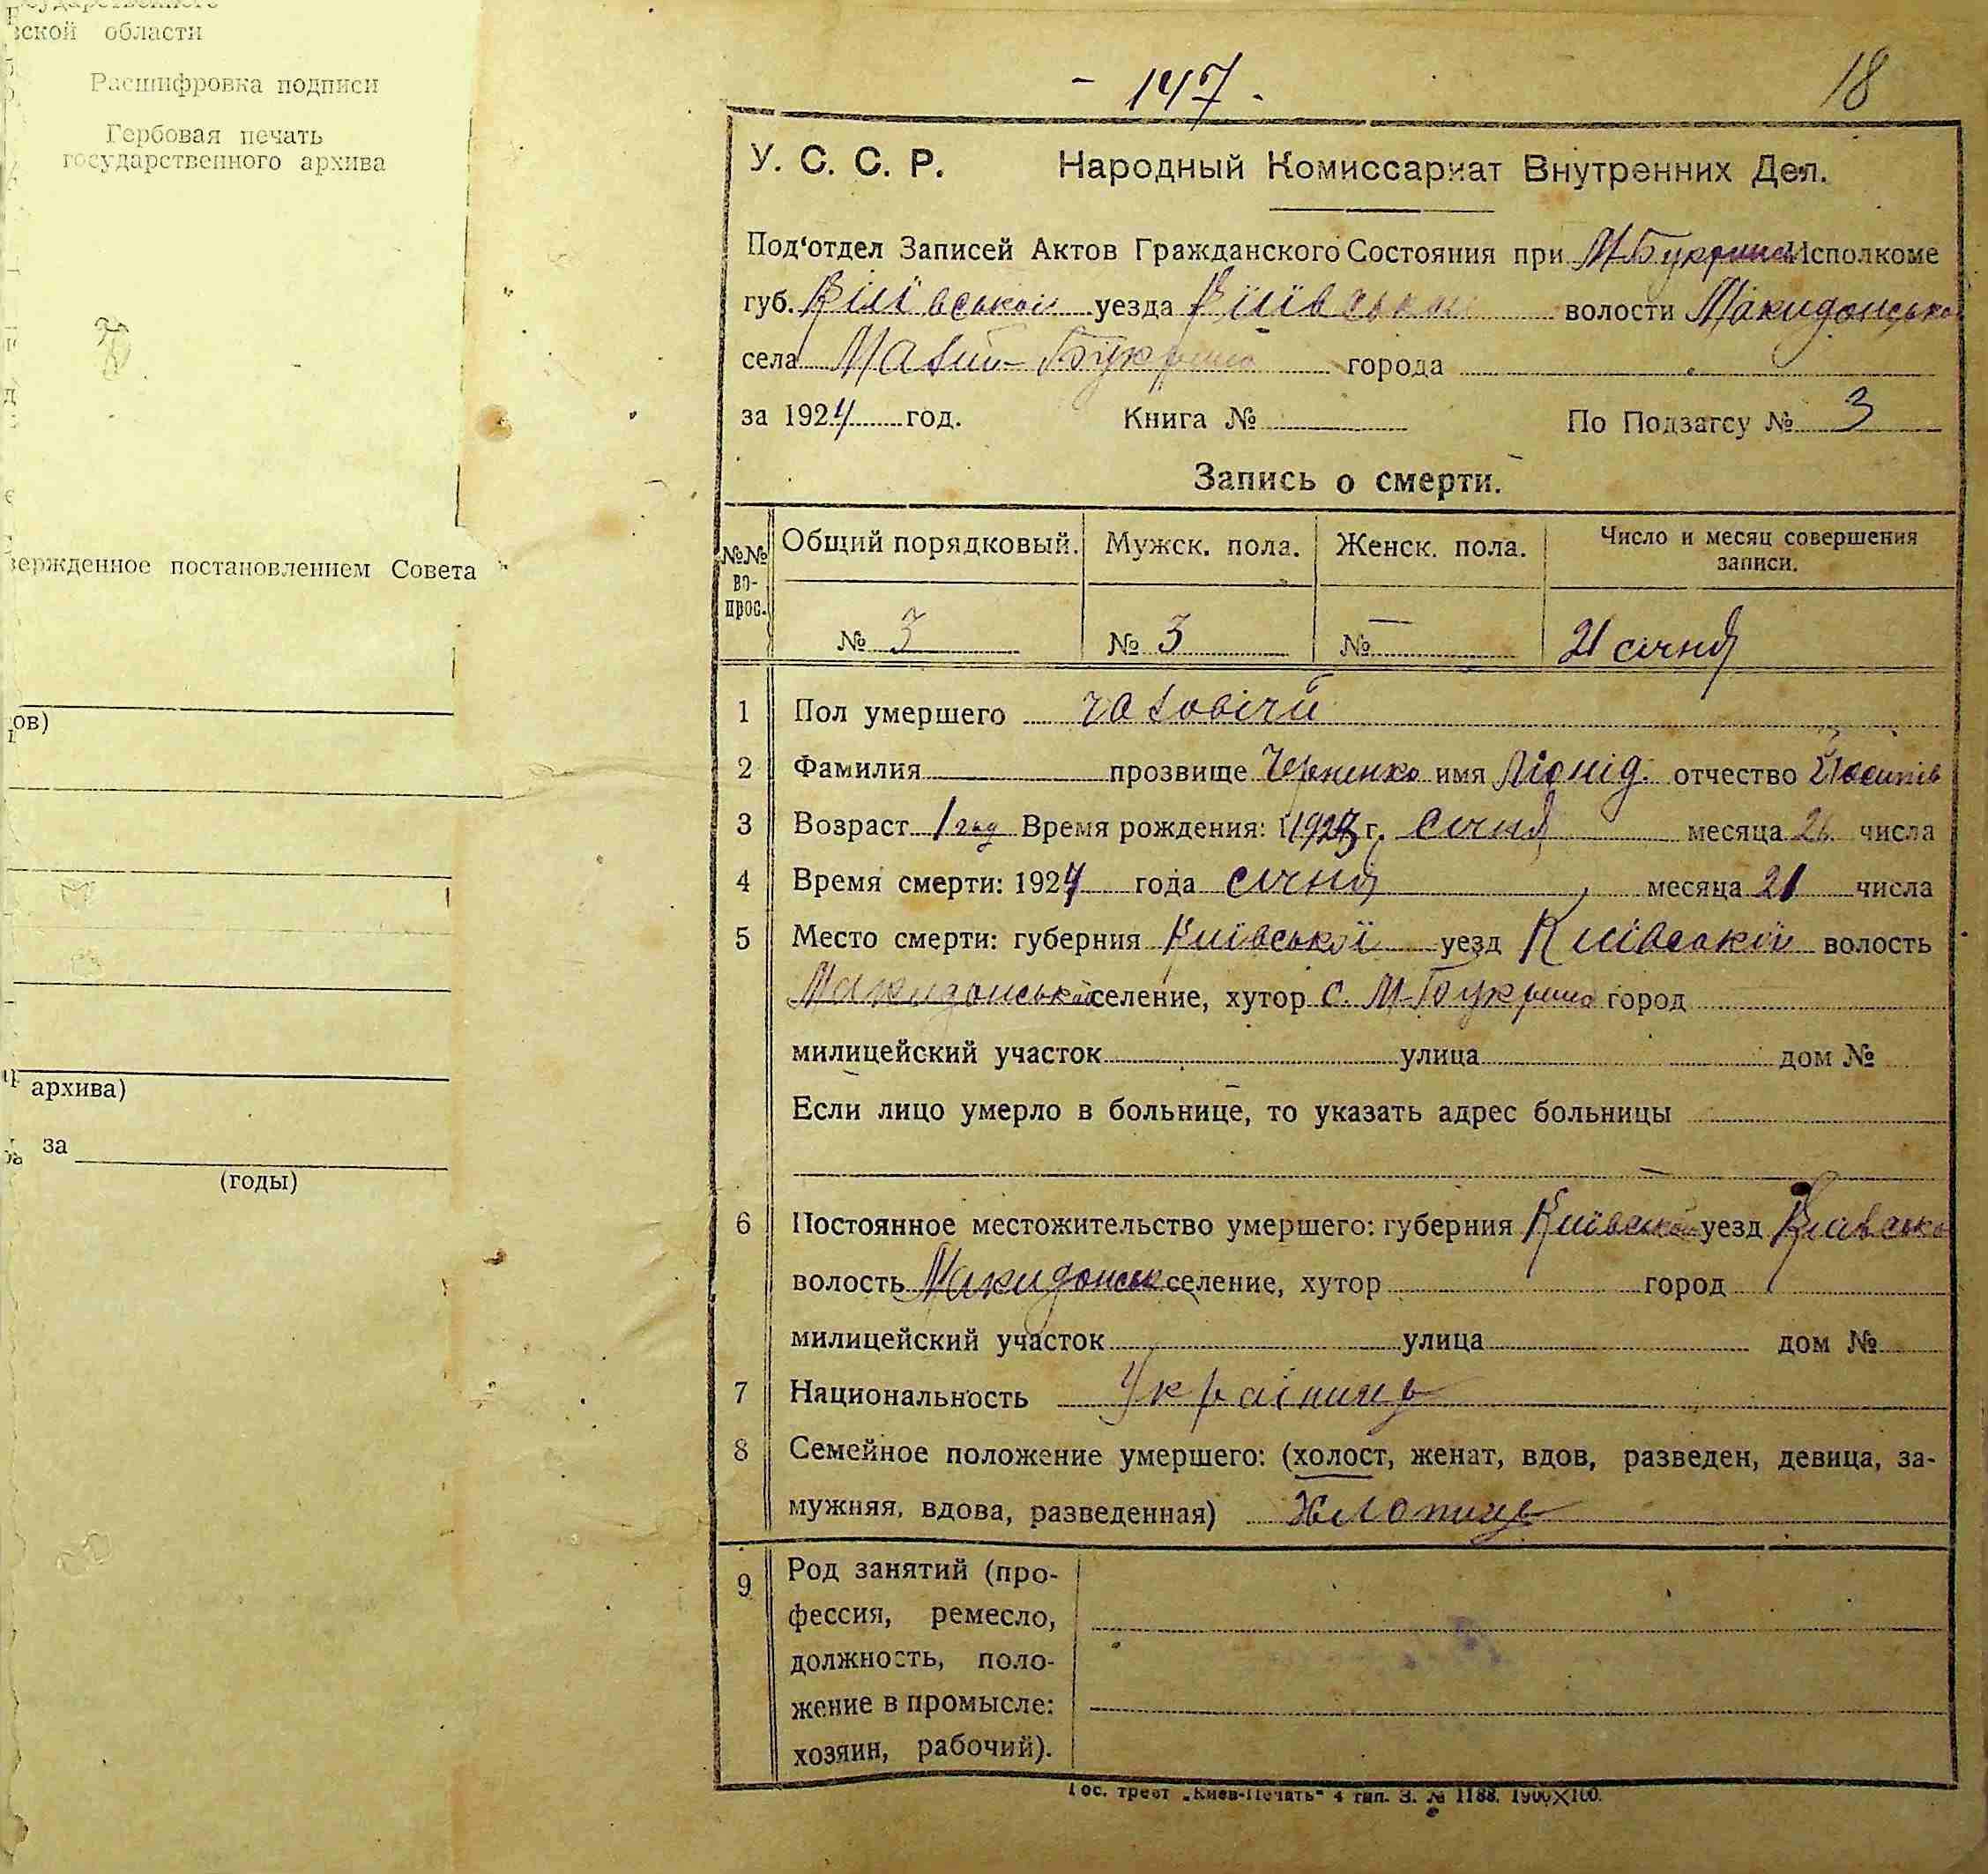 ской области
Расшифровка подписи
Гербовая печать
государственного архива
вержденное постановлением Совета
ов)
архива)
за
(годы)
- 147 -
18
У. С. С. Р. Народный Комиссариат Внутренних Дел.
Под'отдел Записей Актов Гражданского Состояния при М-Букрина Исполкоме
губ. Київської уезда Київської волости Макидонсько
села Малий-Букрина города
за 1924 год. Книга № По Подзагсу № 3
Запись о смерти.
№№ во-прос. Общий порядковый. Мужск. пола. Женск. пола. Число и месяц совершения записи.
№ 3 № 3 № — 21 січня
1 Пол умершего чаловічий
2 Фамилия прозвище Черненко имя Ліонід. отчество Йосипів
3 Возраст 1 год Время рождения: 1923 г. січня месяца 26 числа
4 Время смерти: 1924 года січня месяца 21 числа
5 Место смерти: губерния Київської уезд Київської волость
Макидонської селение, хутор с. М-Букрина город
милицейский участок улица дом №
Если лицо умерло в больнице, то указать адрес больницы
6 Постоянное местожительство умершего: губерния Київської уезд Київсько
волость Макидонськ селение, хутор город
милицейский участок улица дом №
7 Национальность Українець
8 Семейное положение умершего: (холост, женат, вдов, разведен, девица, за-
мужняя, вдова, разведенная) Хлопець
9 Род занятий (про-
фессия, ремесло,
должность, поло-
жение в промысле:
хозяин, рабочий).
Гос. трест „Киев-Печать" 4 тип. З. № 1188. 1900×100.